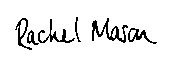 Rachel Mason